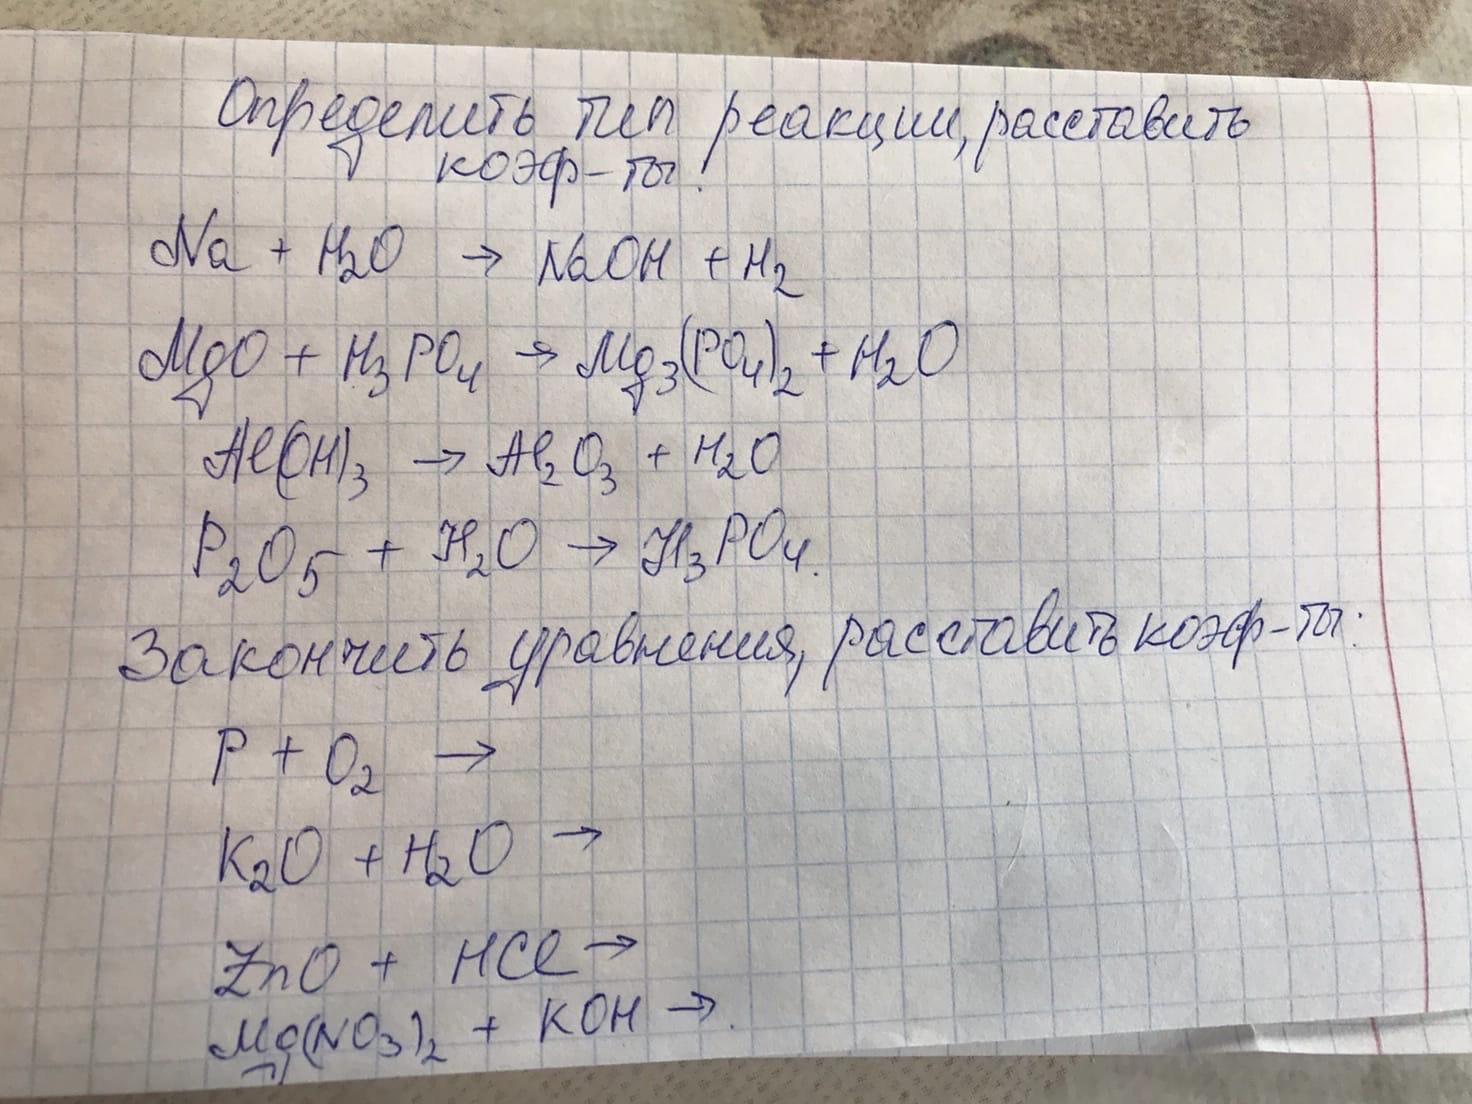 Определить тип реакции, расставить
коэф-ты!
Na + H₂O → NaOH + H₂
MgO + H₃PO₄ → Mg₃(PO₄)₂ + H₂O
Al(OH)₃ → Al₂O₃ + H₂O
P₂O₅ + H₂O → H₃PO₄.
Закончить уравнения, расставить коэф-ты:
P + O₂ →
K₂O + H₂O →
ZnO + HCl →
Mg(NO₃)₂ + KOH →.